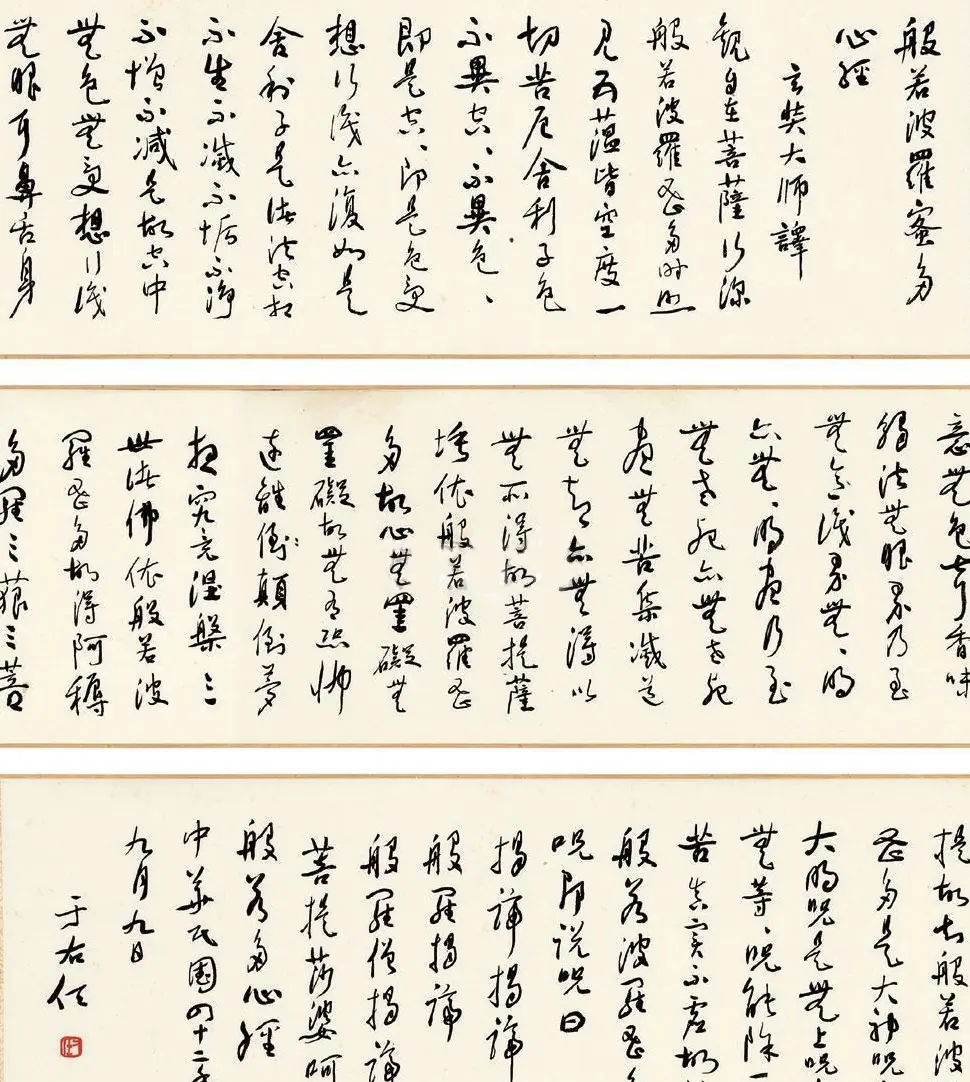 般若波羅蜜多
心經
玄奘大師譯
觀自在菩薩行深
般若波羅蜜多時照
見五蘊皆空度一
切苦厄舍利子色
不異空、不異色、
即是空、即是色受
想行識亦復如是
舍利子是諸法空相
不生不滅不垢不淨
不增不減是故空中
無色無受想行識
無眼耳鼻舌身
意無色聲香味
觸法無眼界乃至
無意識界無、明
亦無、明盡乃至
無老死亦無老死
盡無苦集滅道
無智亦無得以
無所得故菩提薩
埵依般若波羅蜜
多故心無罣礙無
罣礙故無有恐怖
遠離倒顛倒夢
想究竟涅槃三
世諸佛依般若波
羅蜜多故得阿耨
多羅三藐三菩
提故知般若波
蜜多是大神咒
大明咒是無上咒
無等、咒能除一
苦真實不虛故
般若波羅蜜多
咒即說咒曰
揭諦揭諦
般羅揭諦
般羅僧揭諦
菩提莎婆呵
般若多心經
中華民國四十二年
九月九日
于右任